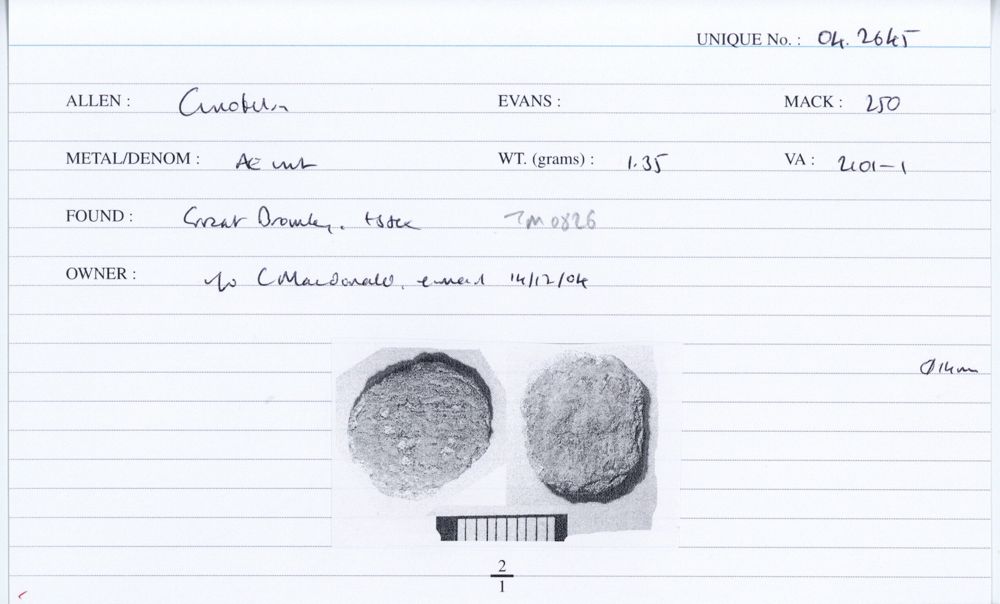 UNIQUE No. : 04.2645
ALLEN : Cunobelin EVANS : MACK : 250
METAL/DENOM : AE unit WT. (grams) : 1.35 VA : 2101-1
FOUND : Great Bromley, Essex TM0826
OWNER : C MacDonald, email 14/12/04
Ø14mm
2
1